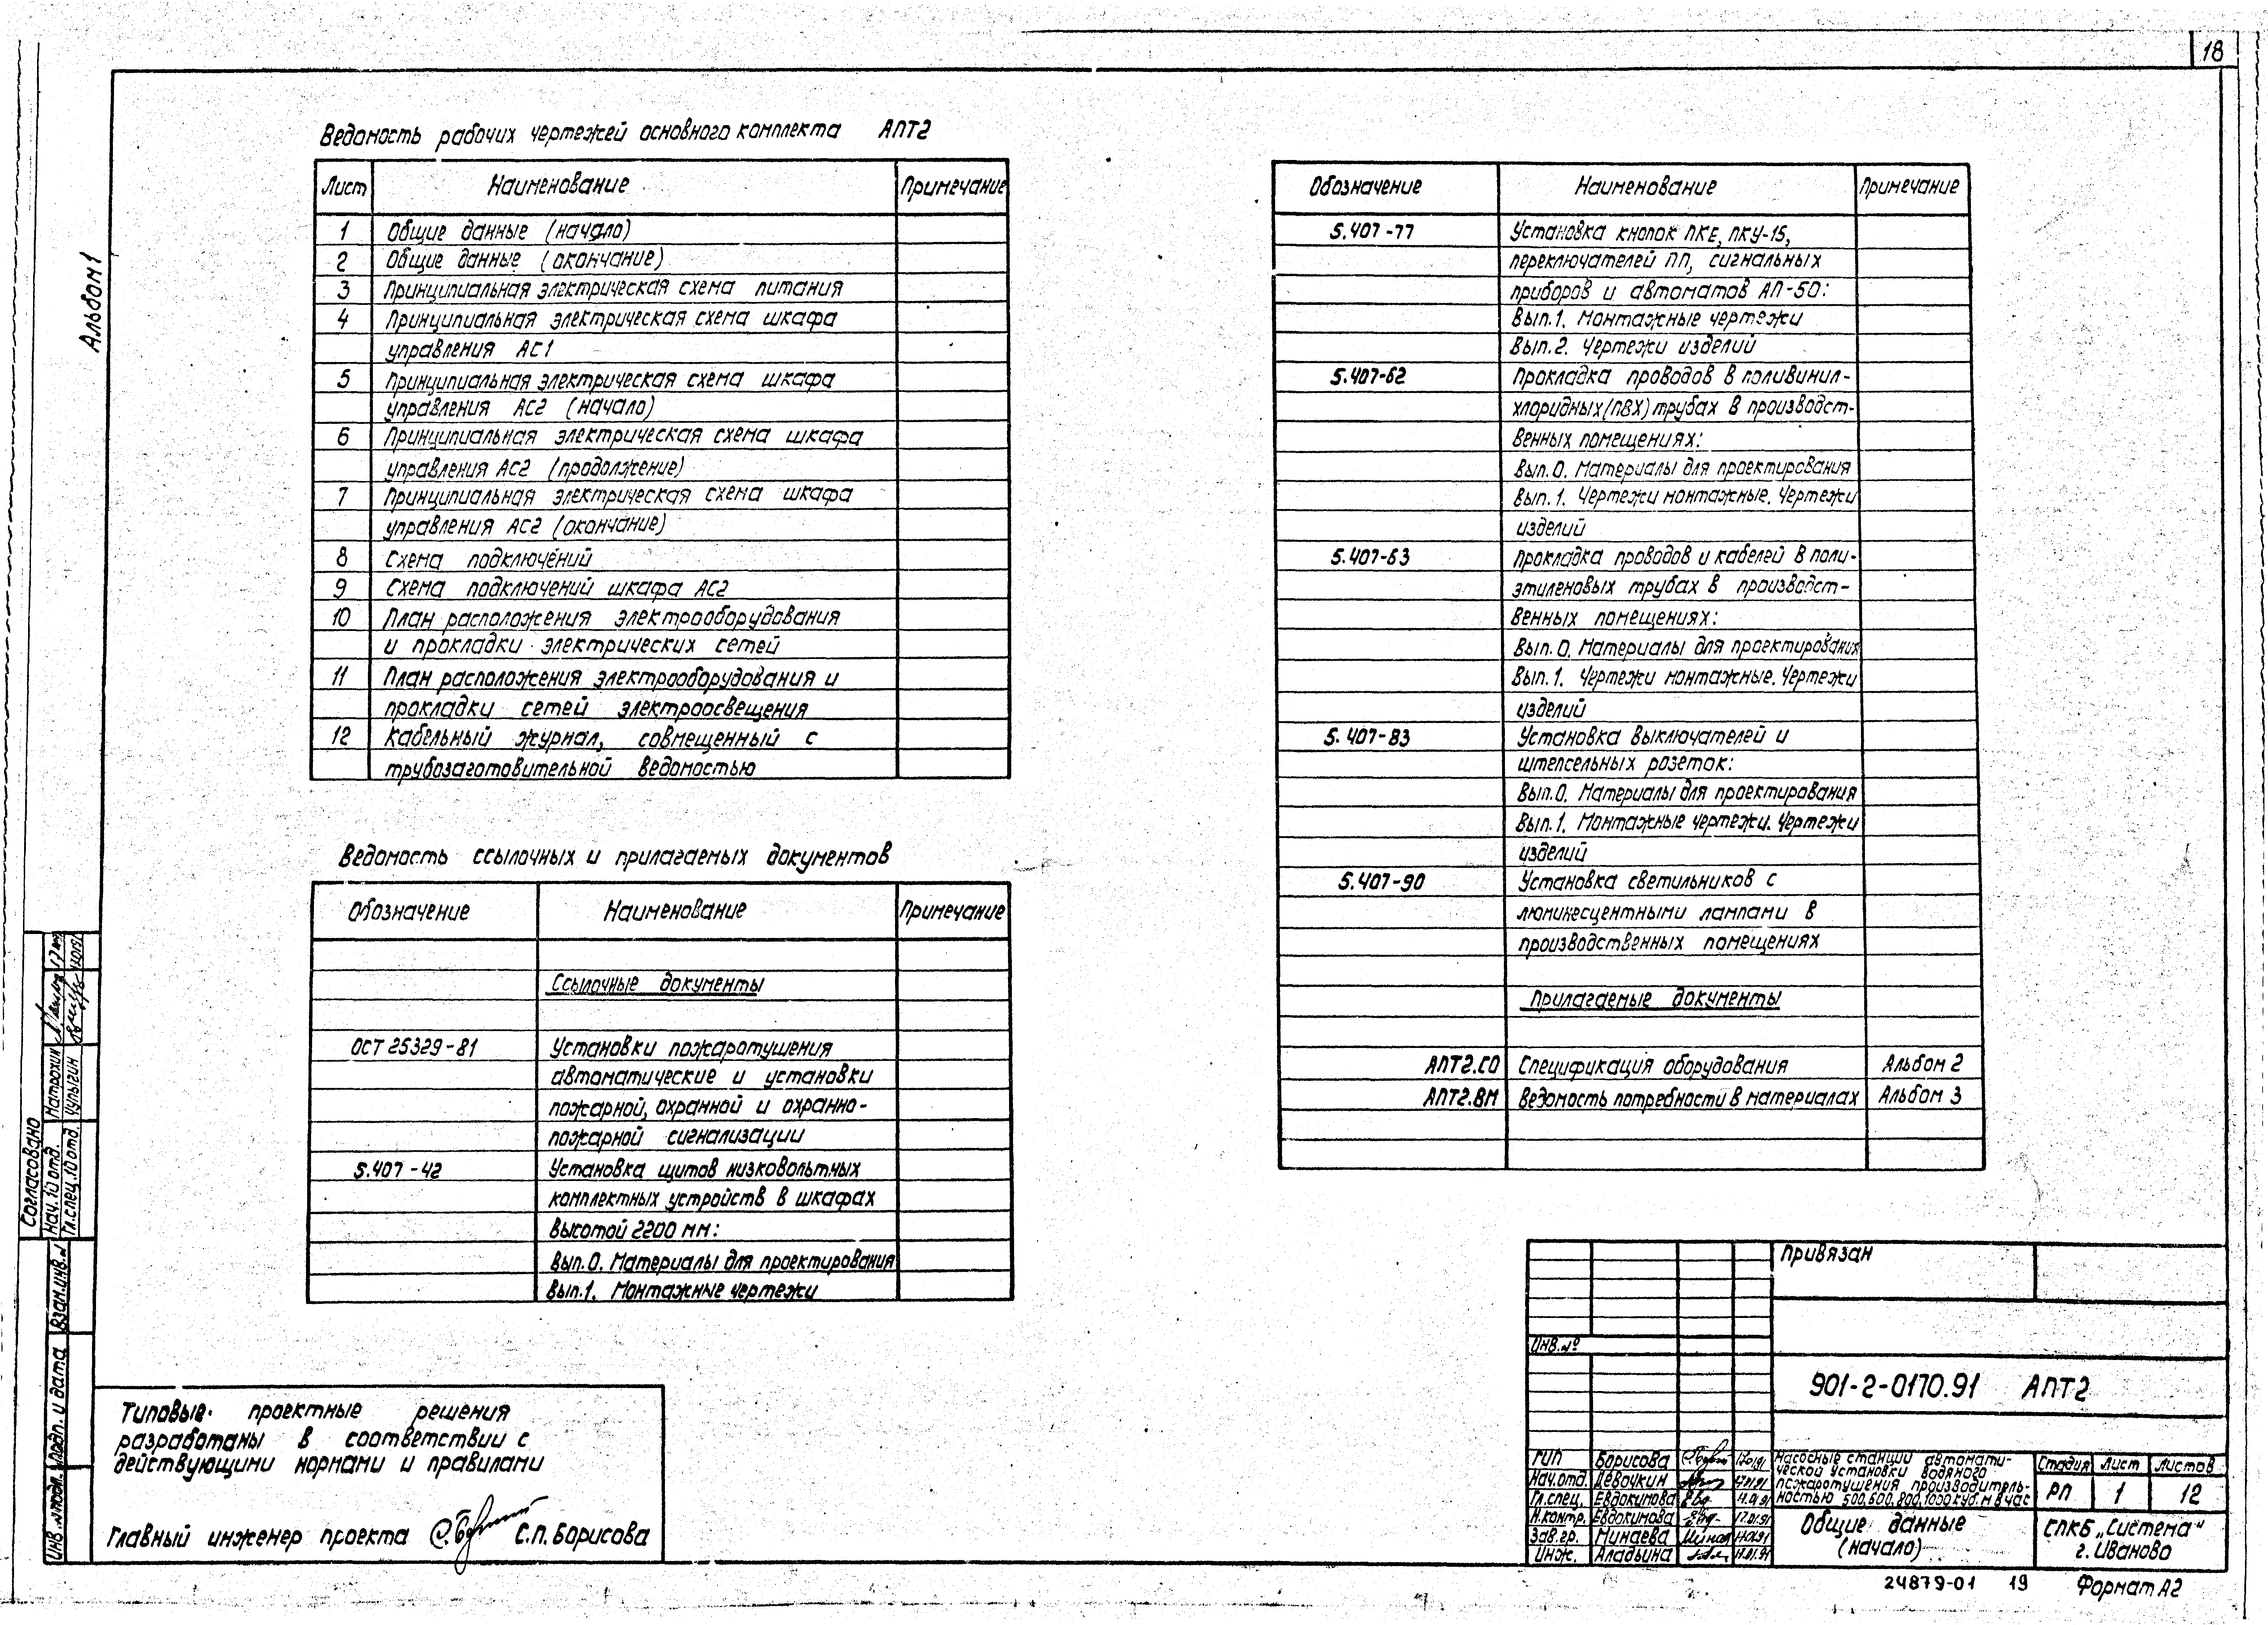 18
Альбом 1
Ведомость рабочих чертежей основного комплекта АПТ2
Лист Наименование Примечание
1 Общие данные (начало)
2 Общие данные (окончание)
3 Принципиальная электрическая схема питания
4 Принципиальная электрическая схема шкафа
управления АС1
5 Принципиальная электрическая схема шкафа
управления АС2 (начало)
6 Принципиальная электрическая схема шкафа
управления АС2 (продолжение)
7 Принципиальная электрическая схема шкафа
управления АС2 (окончание)
8 Схема подключений
9 Схема подключений шкафа АС2
10 План расположения электрооборудования
и прокладки электрических сетей
11 План расположения электрооборудования и
прокладки сетей электроосвещения
12 Кабельный журнал, совмещенный с
трубозаготовительной ведомостью
Ведомость ссылочных и прилагаемых документов
Обозначение Наименование Примечание
Ссылочные документы
ОСТ 25329-81 Установки пожаротушения
автоматические и установки
пожарной, охранной и охранно-
пожарной сигнализации
5.407-42 Установка щитов низковольтных
комплектных устройств в шкафах
высотой 2200 мм:
Вып.0. Материалы для проектирования
Вып.1. Монтажные чертежи
Обозначение Наименование Примечание
5.407-77 Установка кнопок ПКЕ, ПКУ-15,
переключателей ПП, сигнальных
приборов и автоматов АП-50:
Вып.1. Монтажные чертежи
Вып.2. Чертежи изделий
5.407-62 Прокладка проводов в поливинил-
хлоридных (ПВХ) трубах в производст-
венных помещениях:
Вып.0. Материалы для проектирования
Вып.1. Чертежи монтажные. Чертежи
изделий
5.407-63 Прокладка проводов и кабелей в поли-
этиленовых трубах в производст-
венных помещениях:
Вып.0. Материалы для проектирования
Вып.1. Чертежи монтажные. Чертежи
изделий
5.407-83 Установка выключателей и
штепсельных розеток:
Вып.0. Материалы для проектирования
Вып.1. Монтажные чертежи. Чертежи
изделий
5.407-90 Установка светильников с
люминесцентными лампами в
производственных помещениях
Прилагаемые документы
АПТ2.СО Спецификация оборудования Альбом 2
АПТ2.ВМ Ведомость потребности в материалах Альбом 3
Согласовано
Нач.10 отд. Матрохин
Гл.спец.10 отд. Чулыгин
Взам.инв.№
Подп. и дата
Инв.№ подл.
Типовые проектные решения
разработаны в соответствии с
действующими нормами и правилами
Главный инженер проекта С.П.Борисова
Привязан
Инв.№
901-2-0170.91 АПТ2
ГИП Борисова
Нач.отд. Девочкин
Гл.спец. Евдокимова
Н.контр. Евдокимова 17.01.91
Зав.гр. Минаева
Инж. Аладьина 17.01.91
Насосные станции автомати-
ческой установки водяного
пожаротушения производитель-
ностью 500,600,800,1000 куб.м в час
Стадия Лист Листов
РП 1 12
Общие данные
(начало)
СПКБ „Система"
г. Иваново
24879-01 19 Формат А2